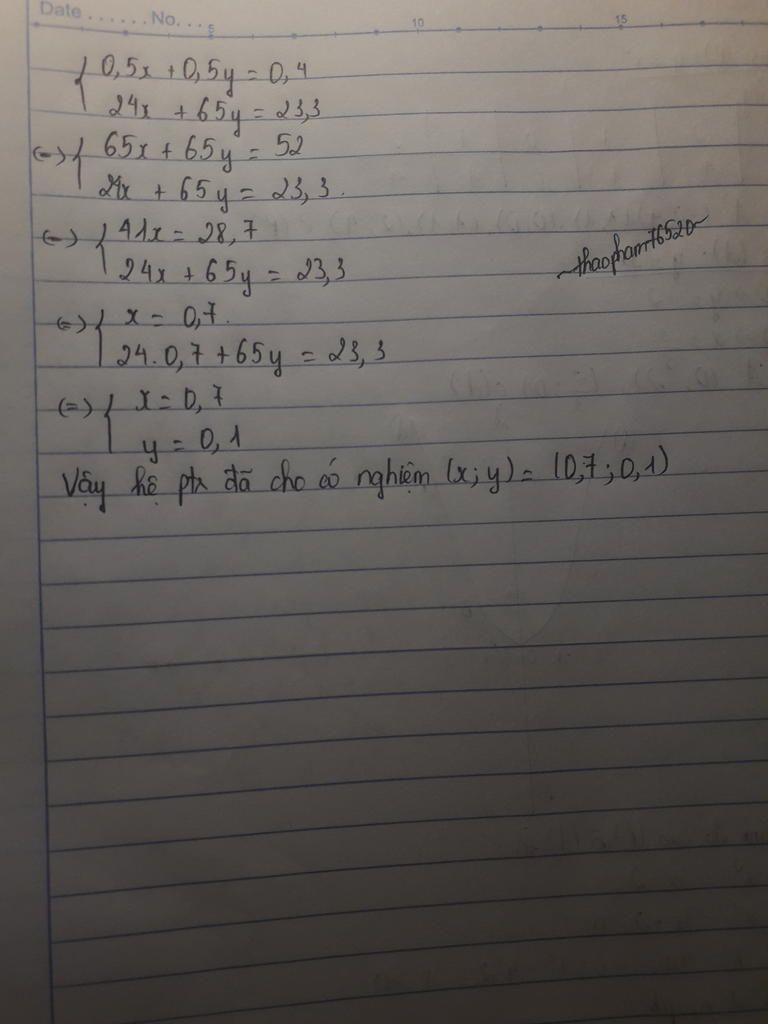 Date . . . . . . No. . . .
5 10 15
{ 0,5x + 0,5y = 0,4
24x + 65y = 23,3
(=) { 65x + 65y = 52
24x + 65y = 23,3.
(=) { 41x = 28,7
24x + 65y = 23,3
~thaopham76520~
(=) { x = 0,7.
24.0,7 + 65y = 23,3
(=) { x = 0,7
y = 0,1
Vậy hệ ptr đã cho có nghiệm (x; y) = (0,7; 0,1)